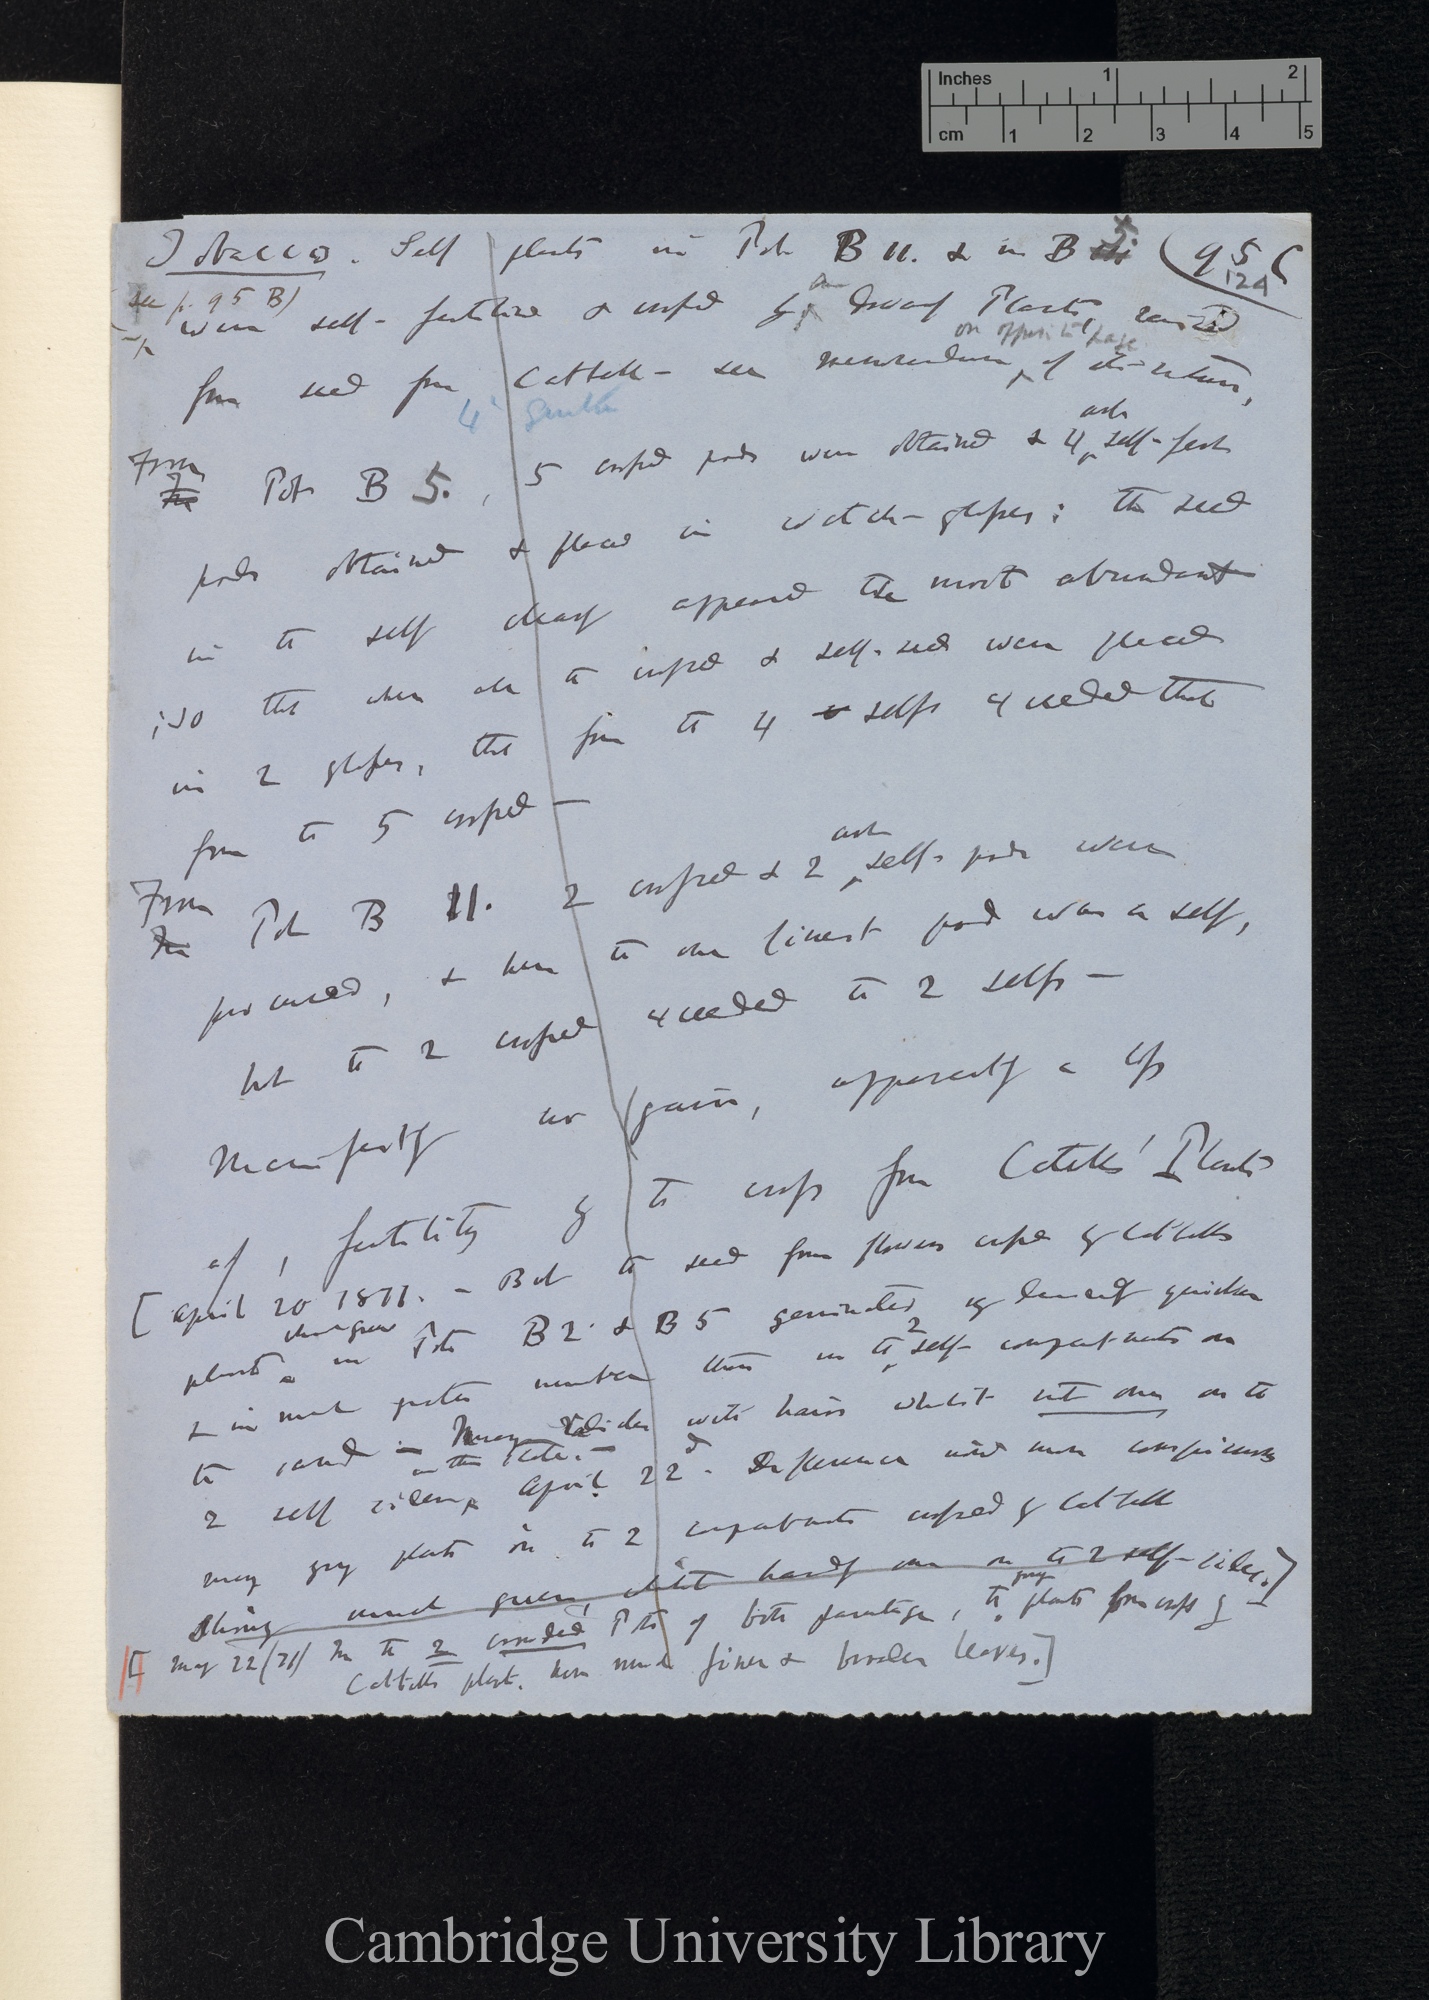 Inches 1 2
cm 1 2 3 4 5
Tobacco. Self plants in Pot B 11. & in B 5 (95 C
124
(see p. 95 B)
were self-fertilised & crossed by Dwarf Plants, raised
on opposite page
from seed from Cattell – see memorandum of
4th
From Pot B 5., 5 crossed pods were obtained & 4 self-fert
pods obtained & placed in watch-glasses; the seed
in the self clearly appeared the most abundant
; so that when all the crossed & self-seed were placed
in 2 glasses, that from the 4 selfs exceeded that
from the 5 crossed –
From Pot B 11. 2 crossed & 2 self-pods were
procured, & here the one finest pod was a self,
but the 2 crossed exceeded the 2 selfs –
Manifestly no gain, apparently a loss
of fertility by the cross from Cattells' Plants
[April 20 1871. – But the seed from flowers crossed by Cattells
plants, in Pots B 2 & B 5 germinated, evidently quicker
& in much greater number than in the 2 self-compartments on
the sand – with hairs whilst not one on the
2 self sides, April 22d. Difference now more conspicuous
many grey plants on the 2 compartments crossed by Cattell
whilst hardly one on the 2 self-sides.]
[May 22 (71) In the 2 crowded Pots of both parentages, the plants from cross by
Cattells plant, have much finer & broader leaves.]
Cambridge University Library